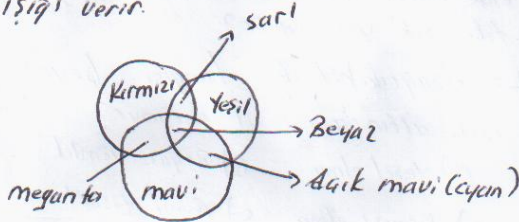 ışığı verir.
sarı
Kırmızı
Yeşil
Beyaz
meganta
mavi
Açık mavi (cyan)